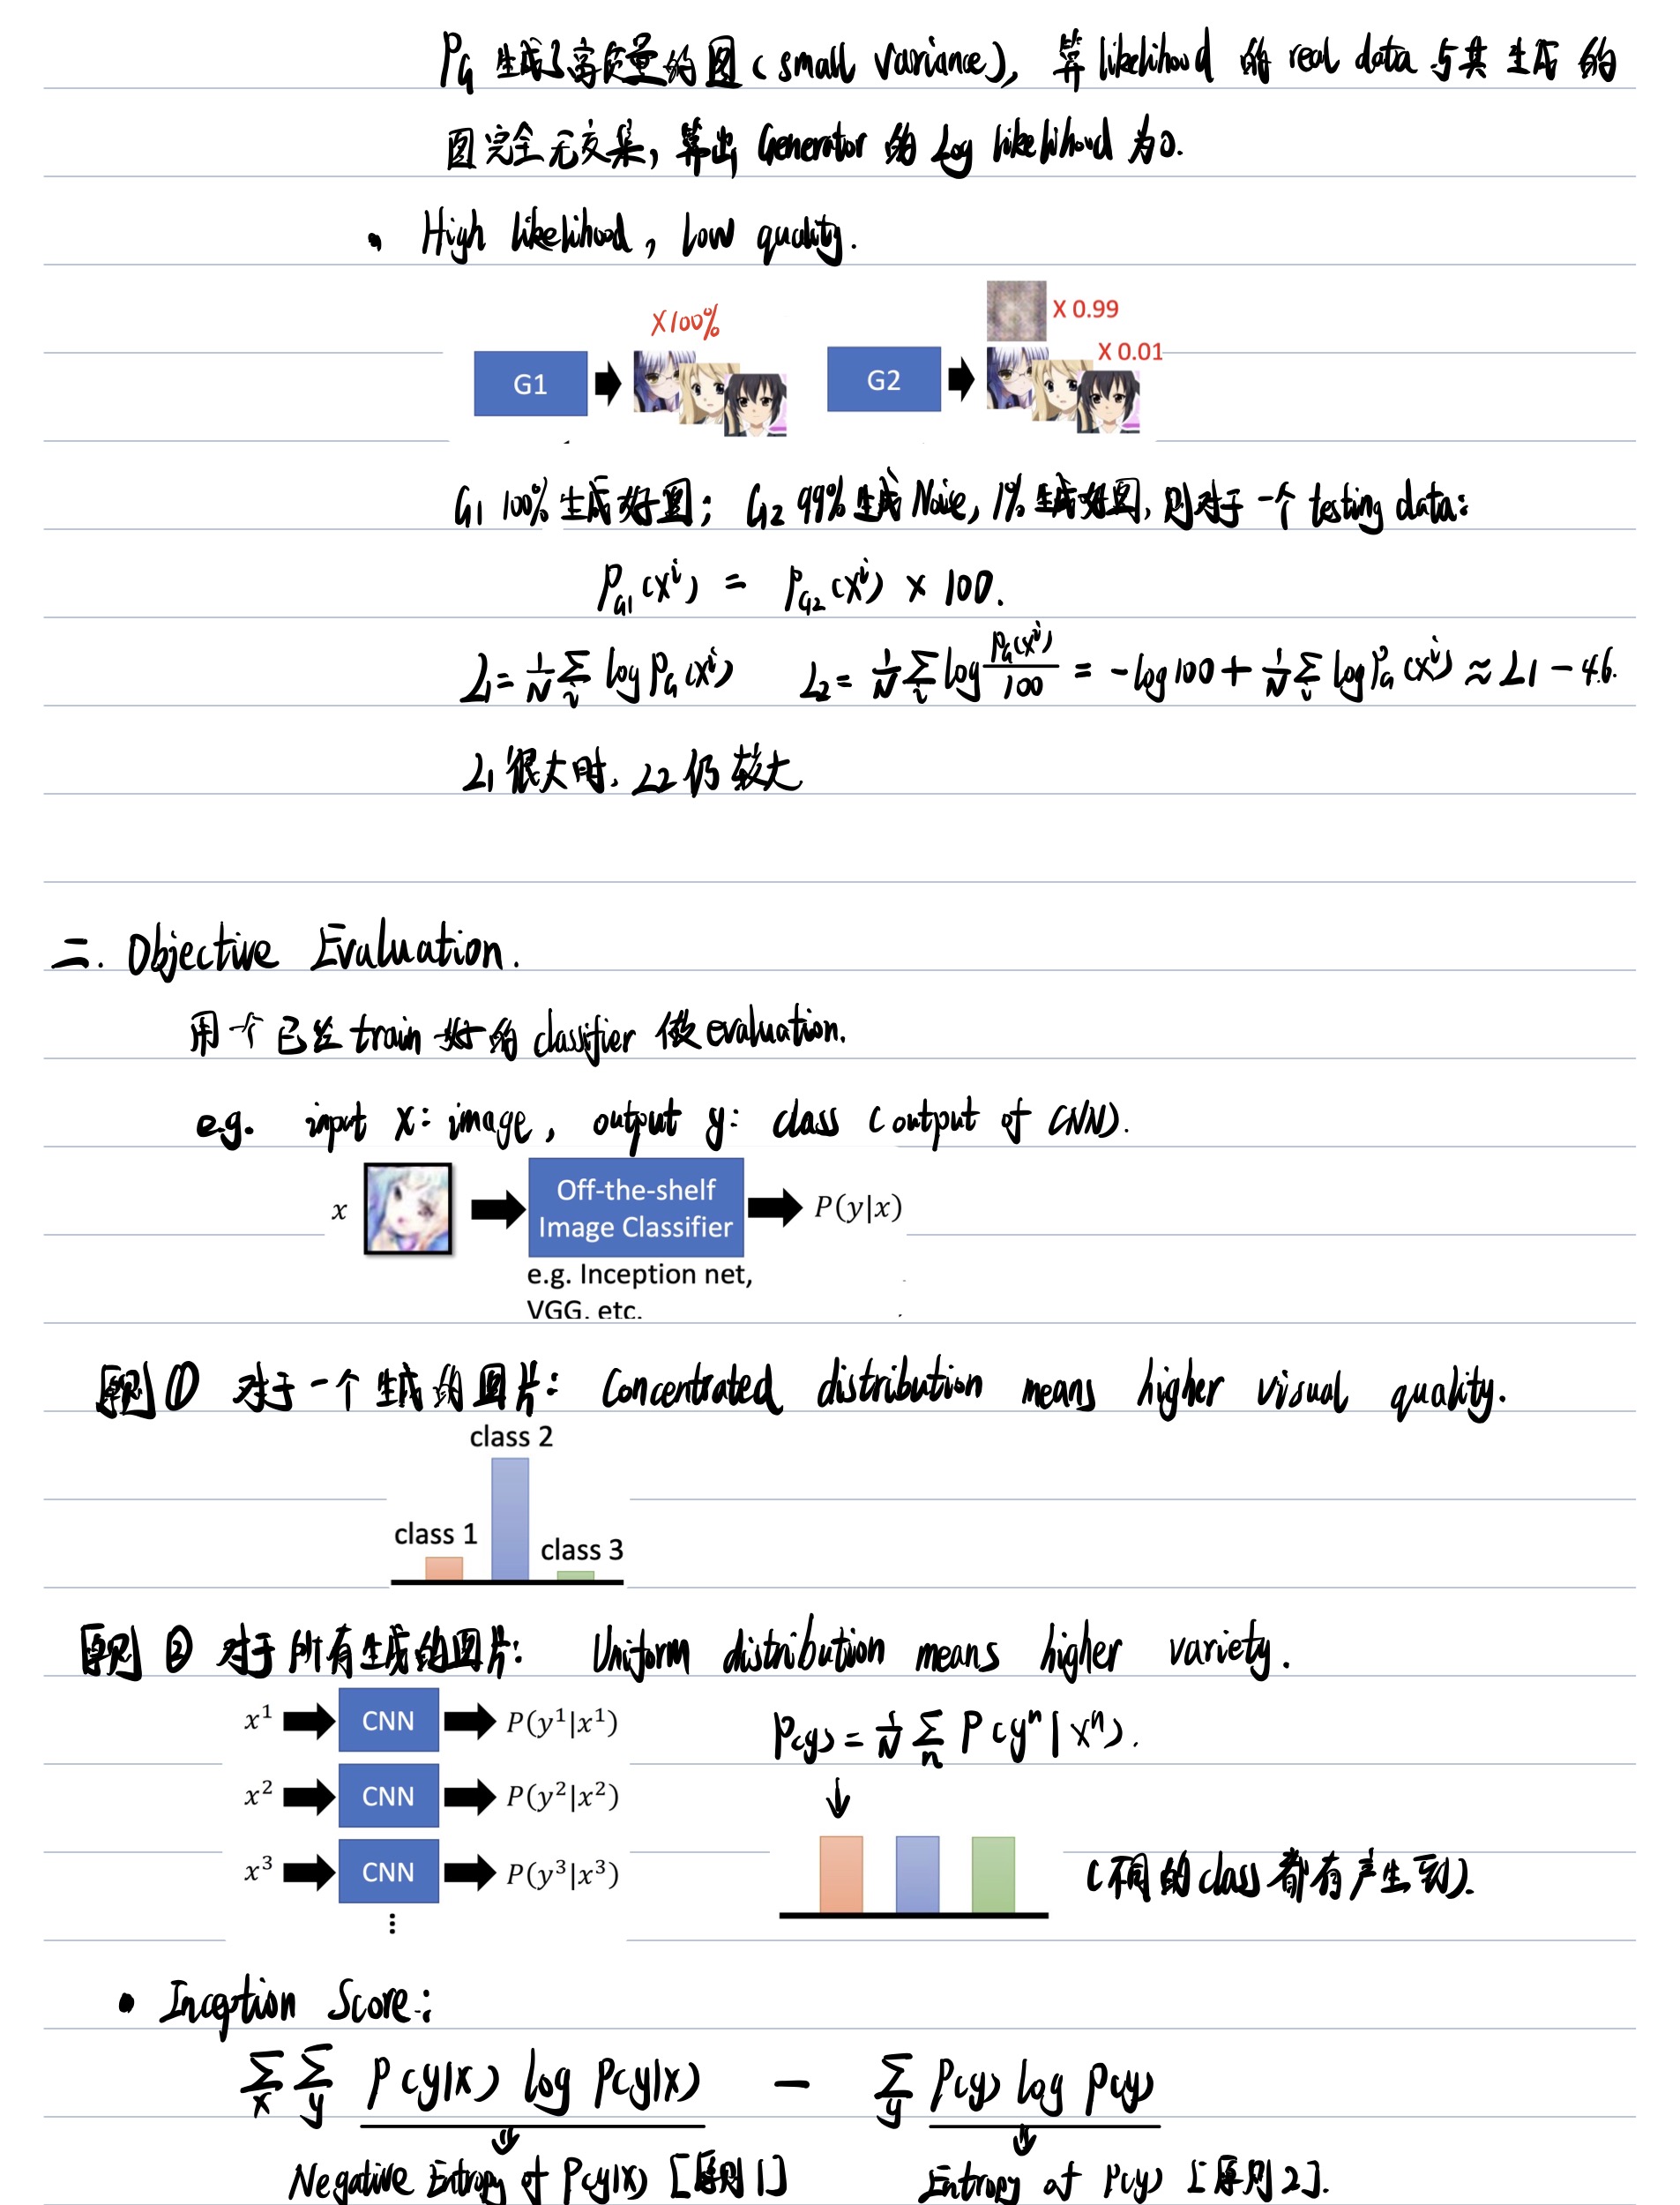 P_G 生成了高质量的图 (small variance), 算 likelihood 的 real data 与其生成的
图完全无交集, 算出 Generator 的 Log likelihood 为0.
• High likelihood, low quality.
X 100%
X 0.99
X 0.01
G1
G2
G1 100% 生成好图; G2 99% 生成 Noise, 1% 生成好图, 则对于一个 testing data:
P_{G1}(x^i) = P_{G2}(x^i) × 100.
L1 = 1/N Σ_i log P_G(x^i) L2 = 1/N Σ_i log P_G(x^i)/100 = -log100 + 1/N Σ_i log P_G(x^i) ≈ L1 - 4.6.
L1 很大时, L2 仍较大
二. Objective Evaluation.
用一个已经 train 好的 classifier 做 evaluation.
e.g. input x: image, output y: class (output of CNN).
x
Off-the-shelf
Image Classifier
P(y|x)
e.g. Inception net,
VGG, etc.
原则 ① 对于一个生成的图片: Concentrated distribution means higher visual quality.
class 2
class 1
class 3
原则 ② 对于所有生成的图片: Uniform distribution means higher variety.
x^1 CNN P(y^1|x^1)
P(y) = 1/N Σ_n P(y^n|x^n).
x^2 CNN P(y^2|x^2)
x^3 CNN P(y^3|x^3)
(不同的 class 都有产生到).
⋮
• Inception Score:
Σ_x Σ_y P(y|x) log P(y|x) - Σ_y P(y) log P(y)
Negative Entropy of P(y|x) [原则1]
Entropy of P(y) [原则2].